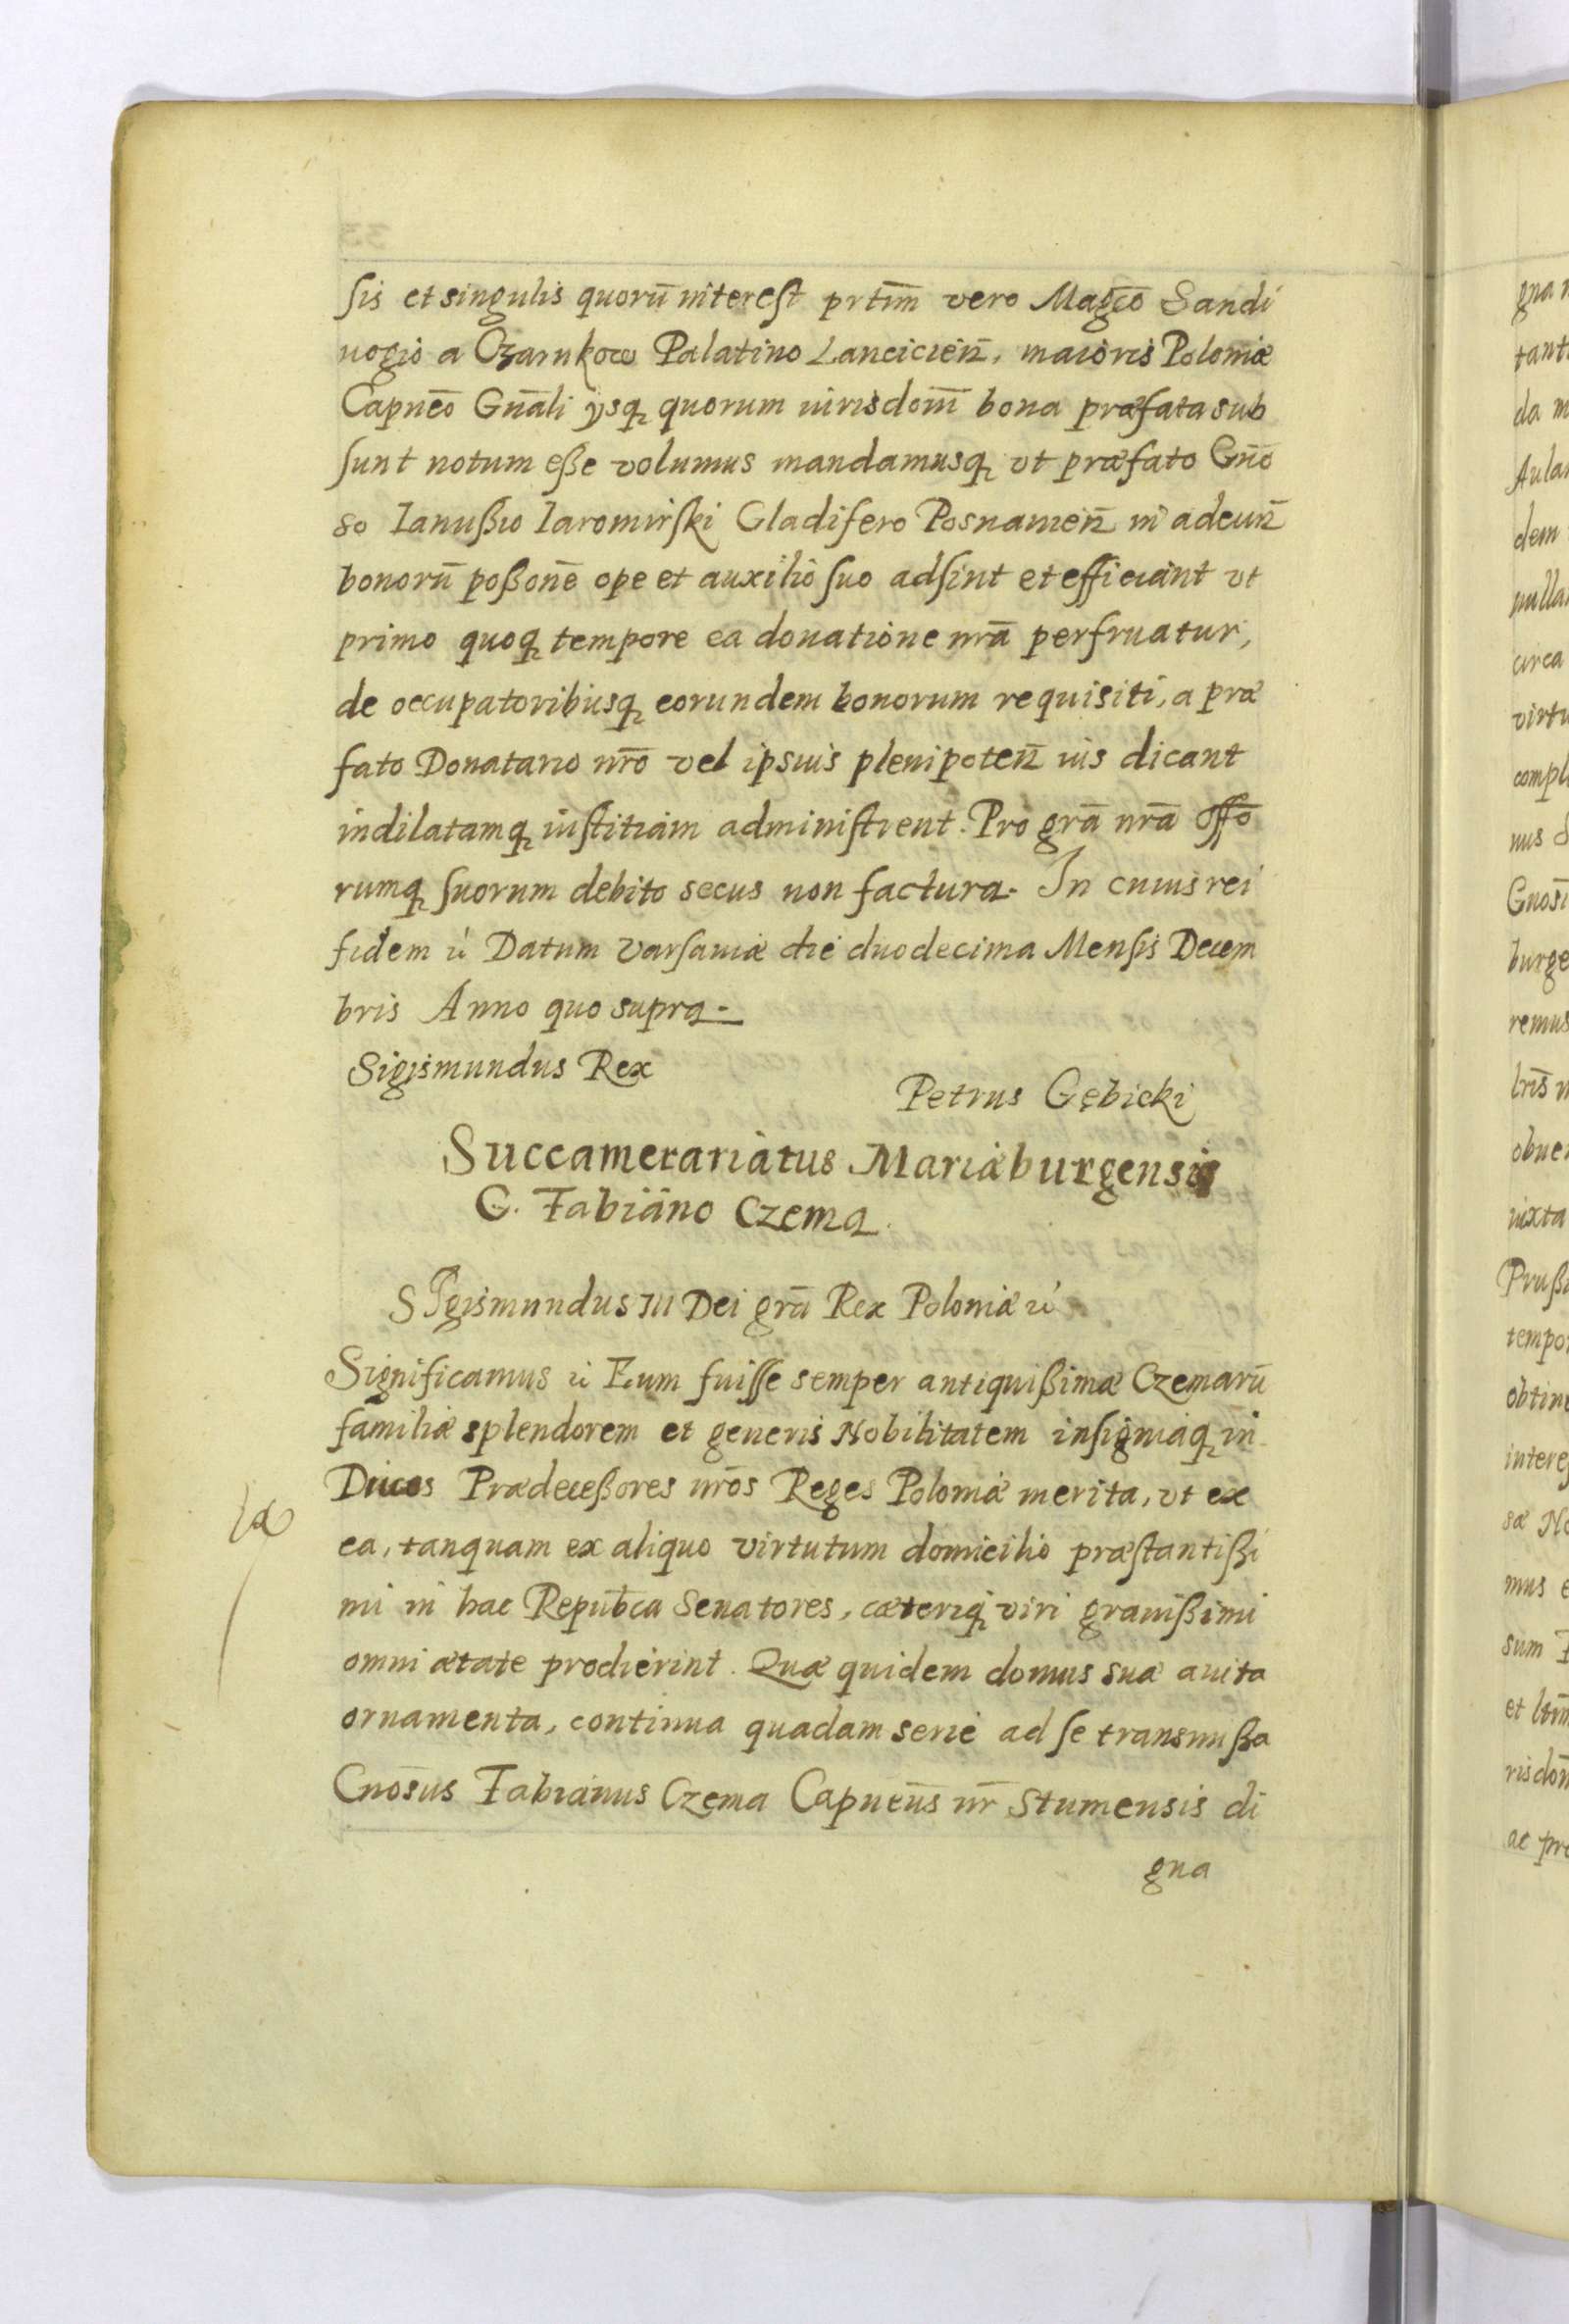 sis et singulis quorū interest prtīm vero Magcō Sandi
uogio a Czarnkow Palatino Lanciciēn, maioris Poloniæ
Capneō Gnāli ysq₃ quorum iurisdom̄ bona præfata sub
sunt notum eße volumus mandamusq₃ vt præfato Gnō
so Ianußio Iaromirski Gladifero Posnanień in adeuń
bonorū poßonē ope et auxilio suo adsint et efficiant vt
primo quoq₃ tempore ea donatione nrā perfruatur,
de occupatoribusq₃ eorundem bonorum requisiti, a præ
fato Donatario nrō vel ipsius plenipoteń ius dicant
indilatamq₃ iustitiam administrent. Pro grā nrā offō
rumq₃ suorum debito secus non factura. In cuius rei
fidem ꝛc Datum Varsauiæ die duodecima Mensis Decem
bris Anno quo supra.
Sigismundus Rex
Petrus Gębicki
Succamerariatus Mariæburgensis
G. Fabiano Czema.
SIgismundus III Dei grā Rex Poloniæ ꝛc
Significamus ꝛc Eum fuisse semper antiquißimæ Czemarū
familiæ splendorem et generis Nobilitatem insigniaq₃ in
Diuos Prædeceßores nrōs Reges Poloniæ merita, vt ex
ea, tanquam ex aliquo virtutum domicilio præstantißi
mi in hac Repubca Senatores, cæteriq₃ viri grauißimi
omni ætate prodierint. Quæ quidem domus suæ auita
ornamenta, continua quadam serie ad se transmißa
Gnōsus Fabianus Czema Capneūs nr̄ Stumensis di
gna